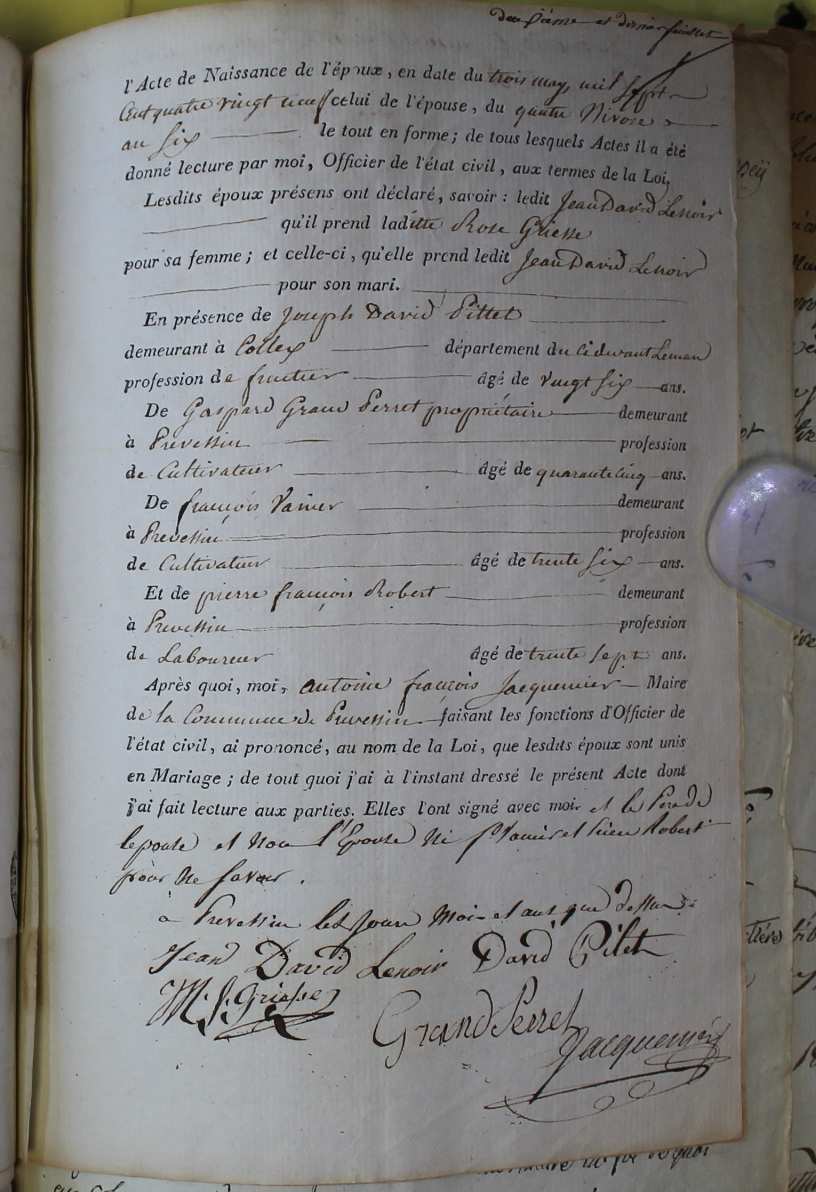 deuxième et dernier feuillet
l'Acte de Naissance de l'époux, en date du trois may, mil sept
Cent quatre vingt neuf celui de l'épouse, du quatre Nivose
an Six le tout en forme; de tous lesquels Actes il a été
donné lecture par moi, Officier de l'état civil, aux termes de la Loi,
Lesdits époux présens ont déclaré, savoir: ledit Jean David Lenoir
qu'il prend ladite Rose Griesse
pour sa femme; et celle-ci, qu'elle prend ledit Jean David Lenoir
pour son mari.
En présence de Joseph David Pittet
demeurant à Collex département du cidevant Leman
profession de fruitier âgé de vingt Six ans.
De Gaspard Grand Perret propriétaire demeurant
à Prevessin profession
de Cultivateur âgé de quarante cinq ans.
De françois Vanier demeurant
à Prevessin profession
de Cultivateur âgé de trente Six ans.
Et de pierre françois Robert demeurant
à Prevessin profession
de Laboureur âgé de trente sept ans.
Après quoi, moi, antoine françois Jacquemier Maire
de la Commune de Prevessin faisant les fonctions d'Officier de
l'état civil, ai prononcé, au nom de la Loi, que lesdits époux sont unis
en Mariage; de tout quoi j'ai à l'instant dressé le présent Acte dont
j'ai fait lecture aux parties. Elles l'ont signé avec moi et le Pere de
lepouse et non l'Epouse ni Robert
pour ne savoir.
à Prevessin les Jour Mois et ans que dessus
Jean David Lenoir David Pilet
M. Griesse
Grand Perret
Jacquemier